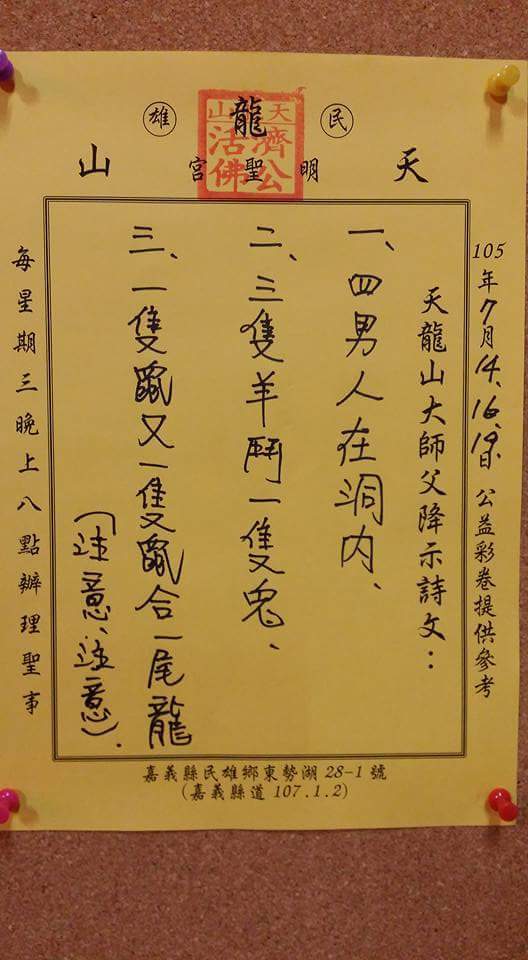 民雄
天龍山
明聖宮
天山
濟公活佛
105年7月14、16、19日 公益彩卷提供參考
天龍山大師父降示詩文：
一、四男人在洞內、
二、三隻羊鬥一隻兔、
三、一隻鼠又一隻鼠合一尾龍
(注意、注意).
每星期三晚上八點辦理聖事
嘉義縣民雄鄉東勢湖 28-1 號
(嘉義縣道 107.1.2)